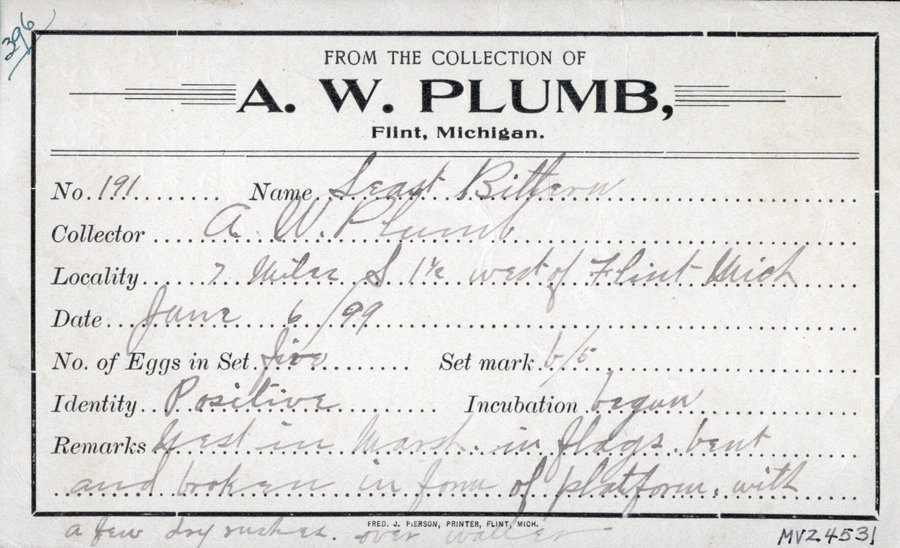 396
FROM THE COLLECTION OF
A. W. PLUMB,
Flint, Michigan.
No. 191 Name Least Bittern
Collector A. W. Plumb
Locality 7 Miles S 1½ west of Flint Mich
Date June 6/99
No. of Eggs in Set five Set mark 6/5
Identity Positive Incubation began
Remarks Nest in Marsh in flags bent
and broken in form of platform, with
a few dry rushes. over watter
FRED. J. PIERSON, PRINTER, FLINT, MICH.
MVZ4531